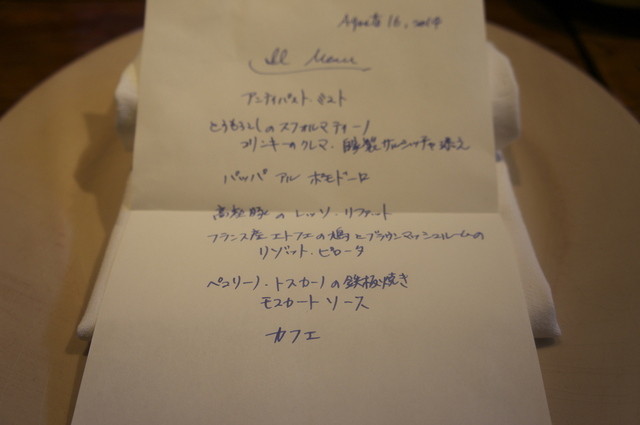 16, 2014
Il Menu
アンティパスト・ミスト
とうもろこしのスフォルマティーノ
コリンキーのクレマ・自家製サルシッチャ添え
パッパ アル ポモドーロ
豚のレッソ・リファット
フランス産エトフェの鳩とブラウンマッシュルームの
リゾット・ピロータ
ペコリーノ・トスカーノの鉄板焼き
モスカート ソース
カフェ